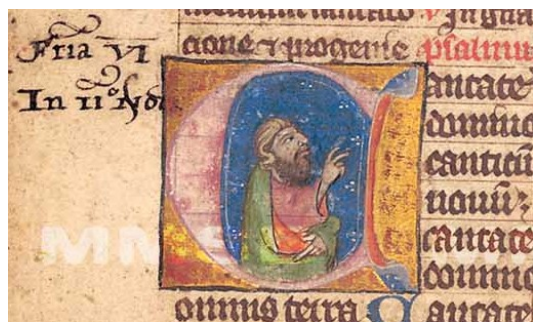 fria vi
In iio
cione ⁊ progenie psalmu
Cantate
domino
canticū
nouū;
cantate
domino
omnis terra Cantate